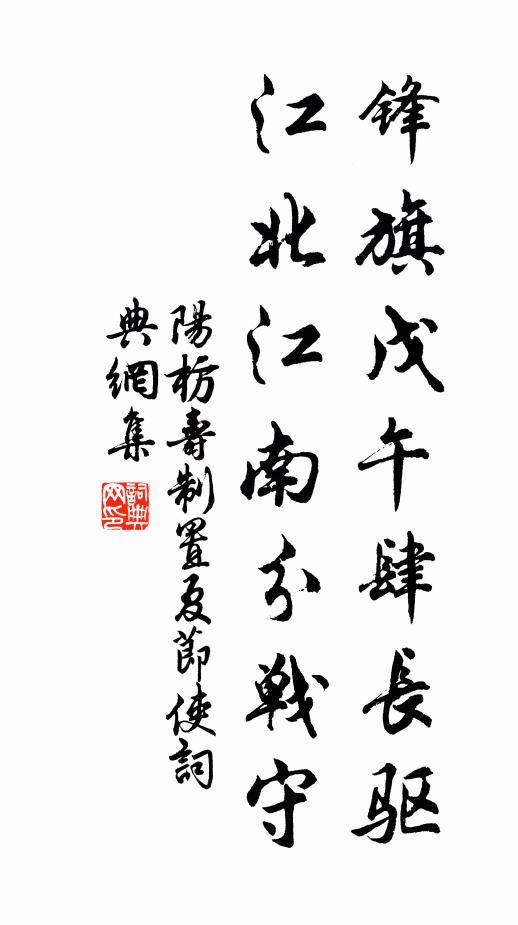 锋旗戊午肆長驱
江北江南分戦守
陽枋壽制置夏節使詞
典網集
詞典
网印